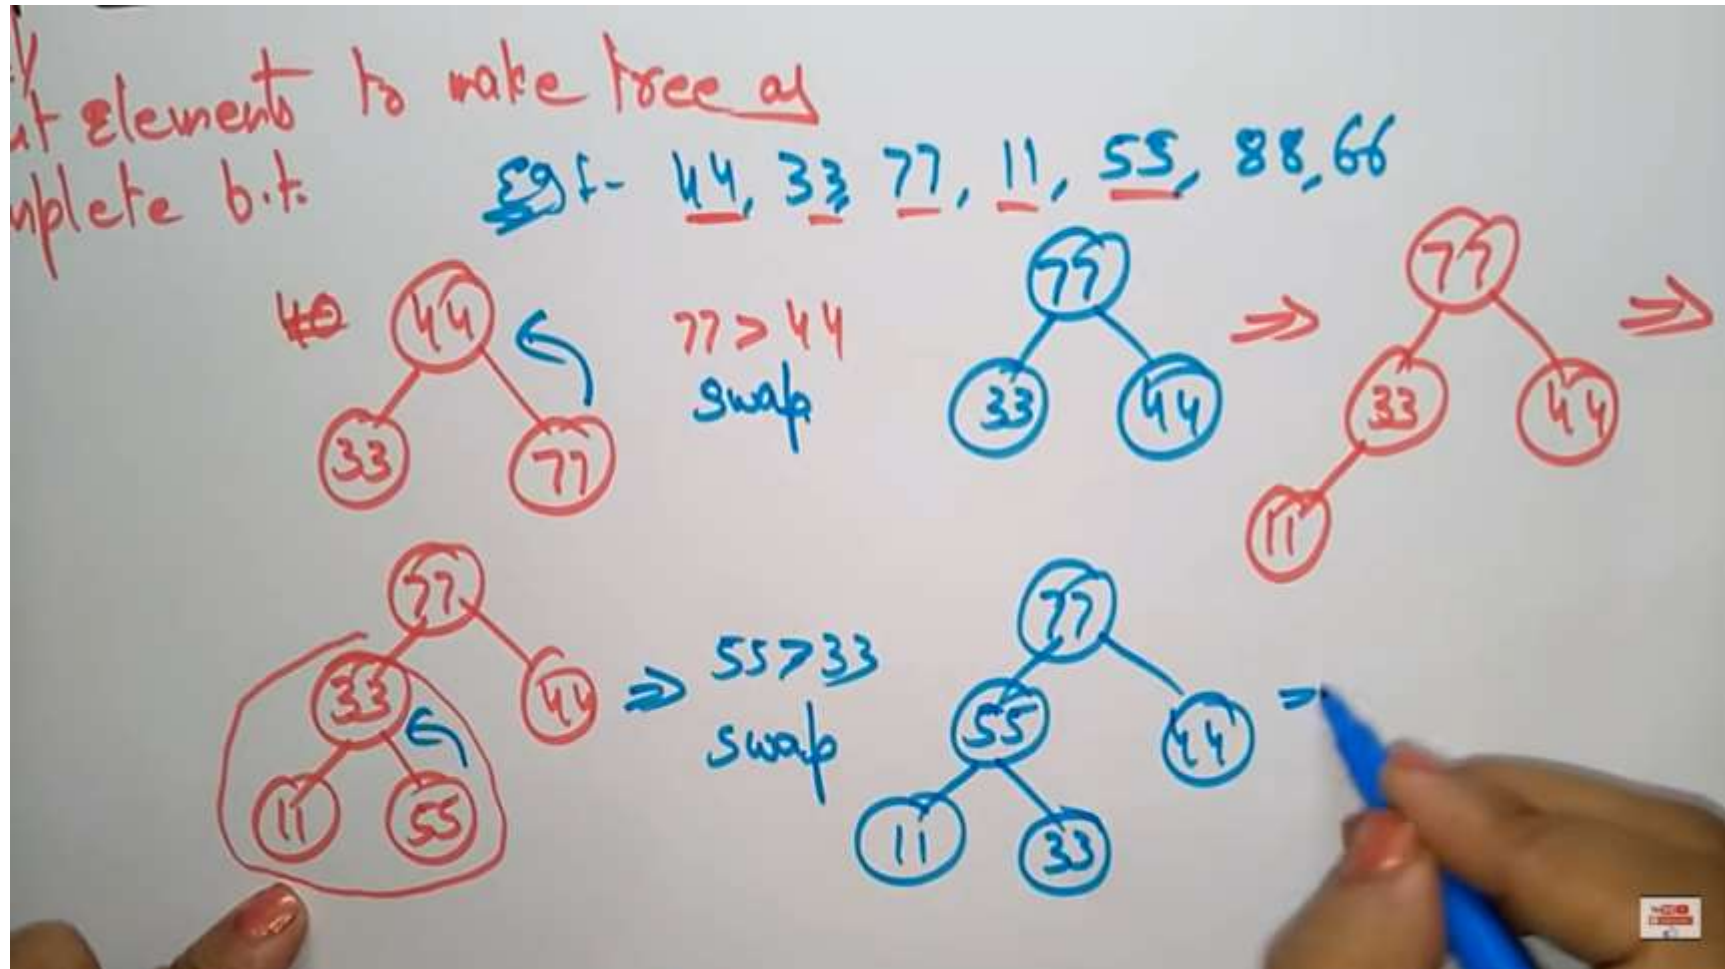 elements to make tree as
b.t.
Eg:- 44, 33, 77, 11, 55, 88, 66
44
33
77
77 > 44
swap
77
33
44
⇒
77
33
44
11
⇒
77
33
44
11
55
⇒
55 > 33
swap
77
55
44
11
33